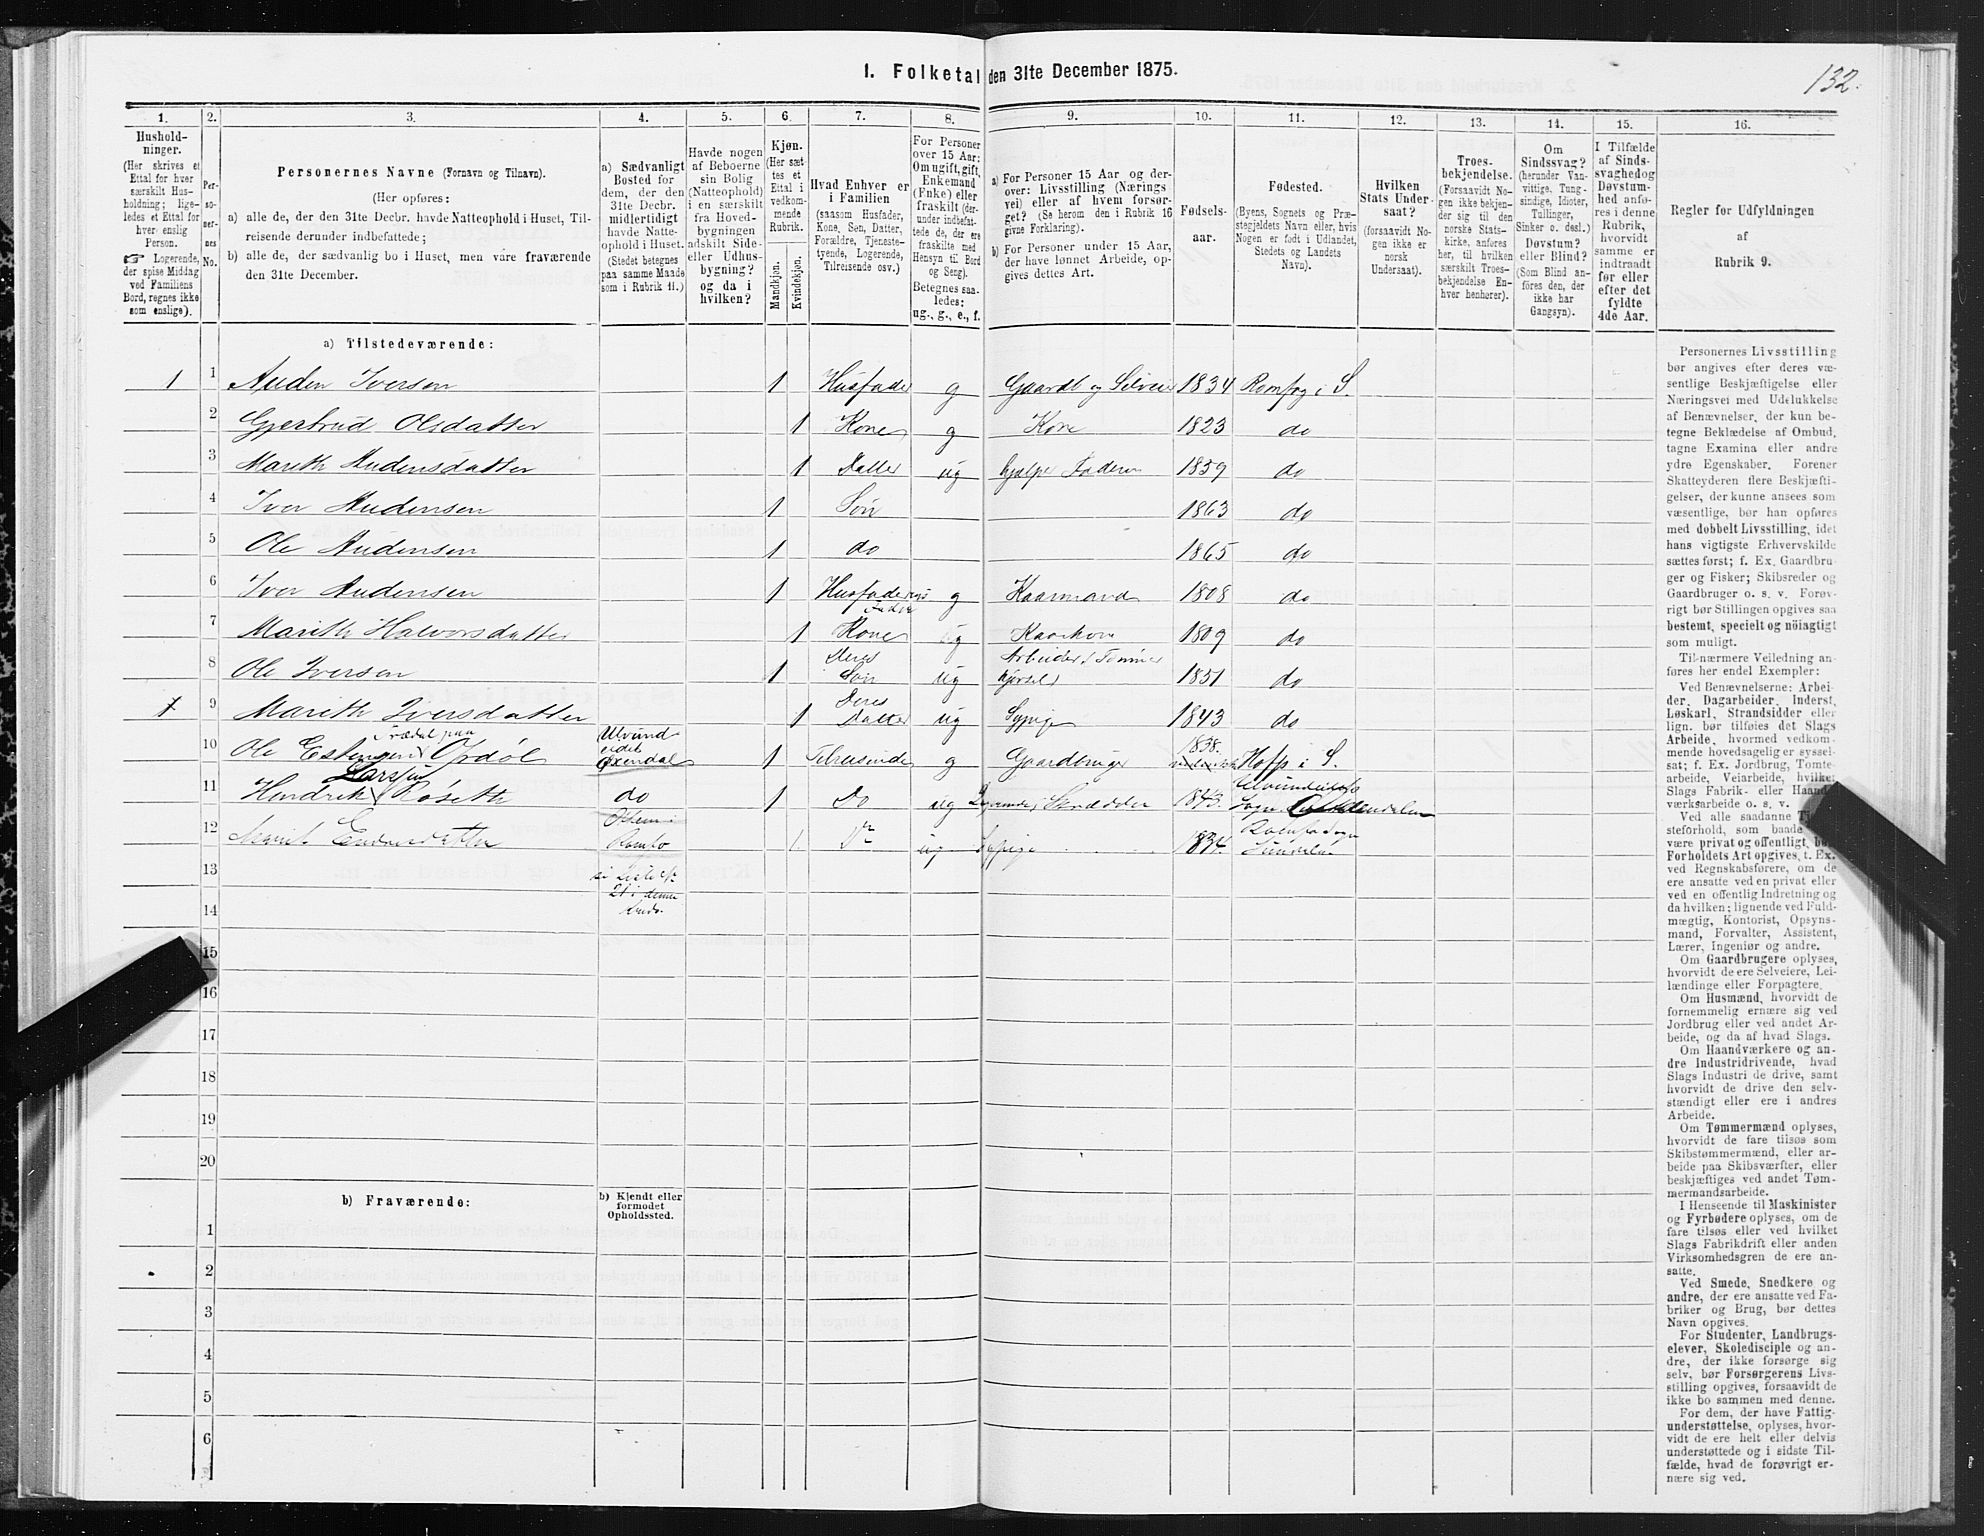 132.
1. Folketal den 31te December 1875.
1. 2. 3. 4. 5. 6. 7. 8. 9. 10. 11. 12. 13. 14. 15. 16.
Hushold-
ninger.
(Her skrives et
Ettal for hver
særskilt Hus-
holdning; lige-
ledes et Ettal for
hver enslig
Person.
☞ Logerende,
der spise Middag
ved Familiens
Bord, regnes ikke
som enslige).
Per-
so-
ner-
nes
No.
Personernes Navne (Fornavn og Tilnavn).
(Her opføres:
a) alle de, der den 31te Decbr. havde Natteophold i Huset, Til-
reisende derunder indbefattede;
b) alle de, der sædvanlig bo i Huset, men vare fraværende
den 31te December.
a) Sædvanligt
Bosted for
dem, der den
31te Decbr.
midlertidigt
havde Natte-
ophold i Huset.
(Stedet betegnes
paa samme Maade
som i Rubrik 11.)
Havde nogen
af Beboerne
sin Bolig
(Natteophold)
i en særskilt
fra Hoved-
bygningen
adskilt Side-
eller Udhus-
bygning?
og da i
hvilken?
Kjøn.
(Her sæt-
tes et
Ettal i
vedkom-
mende
Rubrik.
Mandkjøn.
Kvindekjøn.
Hvad Enhver er
i Familien
(saasom Husfader,
Kone, Søn, Datter,
Forældre, Tjeneste-
tyende, Logerende,
Tilreisende osv.)
For Personer
over 15 Aar:
Om ugift, gift,
Enkemand
(Enke) eller
fraskilt (der-
under indbefat-
tede de, der ere
fraskilte med
Hensyn til Bord
og Seng).
Betegnes saa-
ledes:
ug., g., e., f.
a) For Personer 15 Aar og der-
over: Livsstilling (Nærings-
vei) eller af hvem forsør-
get? (Se herom den i Rubrik 16
givne Forklaring).
b) For Personer under 15 Aar,
der have lønnet Arbeide, op-
gives dettes Art.
Fødsels-
aar.
Fødested.
(Byens, Sognets og Præ-
stegjeldets Navn eller, hvis
Nogen er født i Udlandet,
Stedets og Landets
Navn).
Hvilken
Stats Under-
saat?
(forsaavidt No-
gen ikke er
norsk
Undersaat).
Troes-
bekjendelse.
(Forsaavidt No-
gen ikke bekjen-
der sig til den
norske Stats-
kirke, anføres
her, til hvilken
særskilt Troes-
bekjendelse En-
hver henhører).
Om
Sindssvag?
(herunder Van-
vittige, Tung-
sindige, Idioter,
Tullinger,
Sinker o. desl.)
Døvstum?
eller Blind?
(Som Blind an-
føres den, der
ikke har
Gangsyn).
I Tilfælde
af Sinds-
svaghed og
Døvstum-
hed anfø-
res i denne
Rubrik,
hvorvidt
samme er
indtraadt
før eller
efter det
fyldte
4de Aar.
Regler for Udfyldningen
af
Rubrik 9.
a) Tilstedeværende:
1 1 Auden Iversen 1 Husfader g Gaardb og Selveier 1834 Romfog i S.
2 Gjertrud Olsdatter 1 Kone g Kone 1823 do
3 Marith Audensdatter 1 Datter ug hjælper Faderen 1859 do
4 Iver Audensen 1 Søn 1863 do
5 Ole Audensen 1 do 1865 do
6 Iver Audensen 1 Husfaderens Fader g Kaarmand 1808 do
7 Marith Halvorsdatter 1 Kone Kaarkone 1809 do
8 Ole Iversen 1 Deres Søn ug Arbeider i Tømmer kjørsel 1851 do
9 Marith Iversdatter 1 Deres Datter ug Sypige 1843 do
10 Ole Estensen Ordøl Ulvund eidet Øxendal 1 Tilreisende g Gaardbruger 1838. Hofs i S.
11 Hendrik Larsen Røseth do 1 Do ug Skrædder 1843. Ulvundeidets Sogn
12 Marit Endresdatter Romfo 1 Do ug Sypige 1834. Romfo Sogn Sundalen
21 i denne Kreds.
13
14
15
16
17
18
19
20
b) Fraværende:
b) Kjendt eller
formodet
Opholdssted.
1
2
3
4
5
6
Personernes Livsstilling
bør angives efter deres væ-
sentlige Beskjæftigelse eller
Næringsvei med Udelukkelse
af Benævnelser, der kun be-
tegne Beklædelse af Ombud,
tagne Examina eller andre
ydre Egenskaber. Forener
Skatteyderen flere Beskjæfti-
gelser, der kunne ansees som
væsentlige, bør han opføres
med dobbelt Livsstilling, idet
hans vigtigste Erhvervskilde
sættes først; f. Ex. Gaardbru-
ger og Fisker; Skibsreder og
Gaardbruger o. s. v. Forøv-
rigt bør Stillingen opgives saa
bestemt, specielt og nöiagtigt
som muligt.
Til nærmere Veiledning an-
føres her endel Exempler:
Ved Benævnelserne: Arbei-
der, Dagarbeider, Inderst,
Løskarl, Strandsidder eller
lign. bør tilføies det Slags
Arbeide, hvormed vedkom-
mende hovedsagelig er syssel-
sat; f. Ex. Jordbrug, Tomte-
arbeide, Veiarbeide, hvilket
Slags Fabrik- eller Haand-
værksarbeide o. s. v.
Ved alle saadanne Til-
stedeforhold, som baade
være privat og offentligt, bør
Forholdets Art opgives, t. Ex.
ved Regnskabsførere, om de
ere ansatte ved en privat eller
ved en offentlig Indretning og
da hvilken; lignende ved Fuld-
mægtig, Kontorist, Opsyns-
mand, Forvalter, Assistent,
Lærer, Ingeniør og andre.
Om Gaardbrugere oplyses,
hvorvidt de ere Selveiere, Lei-
lændinge eller Forpagtere.
Om Husmænd, hvorvidt de
fornemmelig ernære sig ved
Jordbrug eller ved andet Ar-
beide, og da af hvad Slags.
Om Haandværkere og an-
dre Industridrivende, hvad
Slags Industri de drive, samt
hvorvidt de drive den selv-
stændigt eller ere i andres
Arbeide.
Om Tømmermænd oplyses,
hvorvidt de fare tilsøs som
Skibstømmermænd, eller ar-
beide paa Skibsværfter, eller
beskjæftiges ved andet Tøm-
mermandsarbeide.
I Henseende til Maskinister
og Fyrbødere oplyses, om de
fare tilsøs eller ved hvilket
Slags Fabrikdrift eller anden
Virksomhedsgren de ere an-
satte.
Ved Smede, Snedkere og
andre, der ere ansatte ved Fa-
briker og Brug, bør dettes
Navn opgives.
For Studenter, Landbrugs-
elever, Skoledisciple og an-
dre, der ikke forsørge sig
selv, bør Forsørgerens Livs-
stilling opgives, forsaavidt de
ikke bo sammen med denne.
For dem, der have Fattig-
understøttelse, oplyses, hvor-
vidt de ere helt eller delvis
understøttede og i sidste Til-
fælde, hvad de forøvrigt er-
nære sig ved.